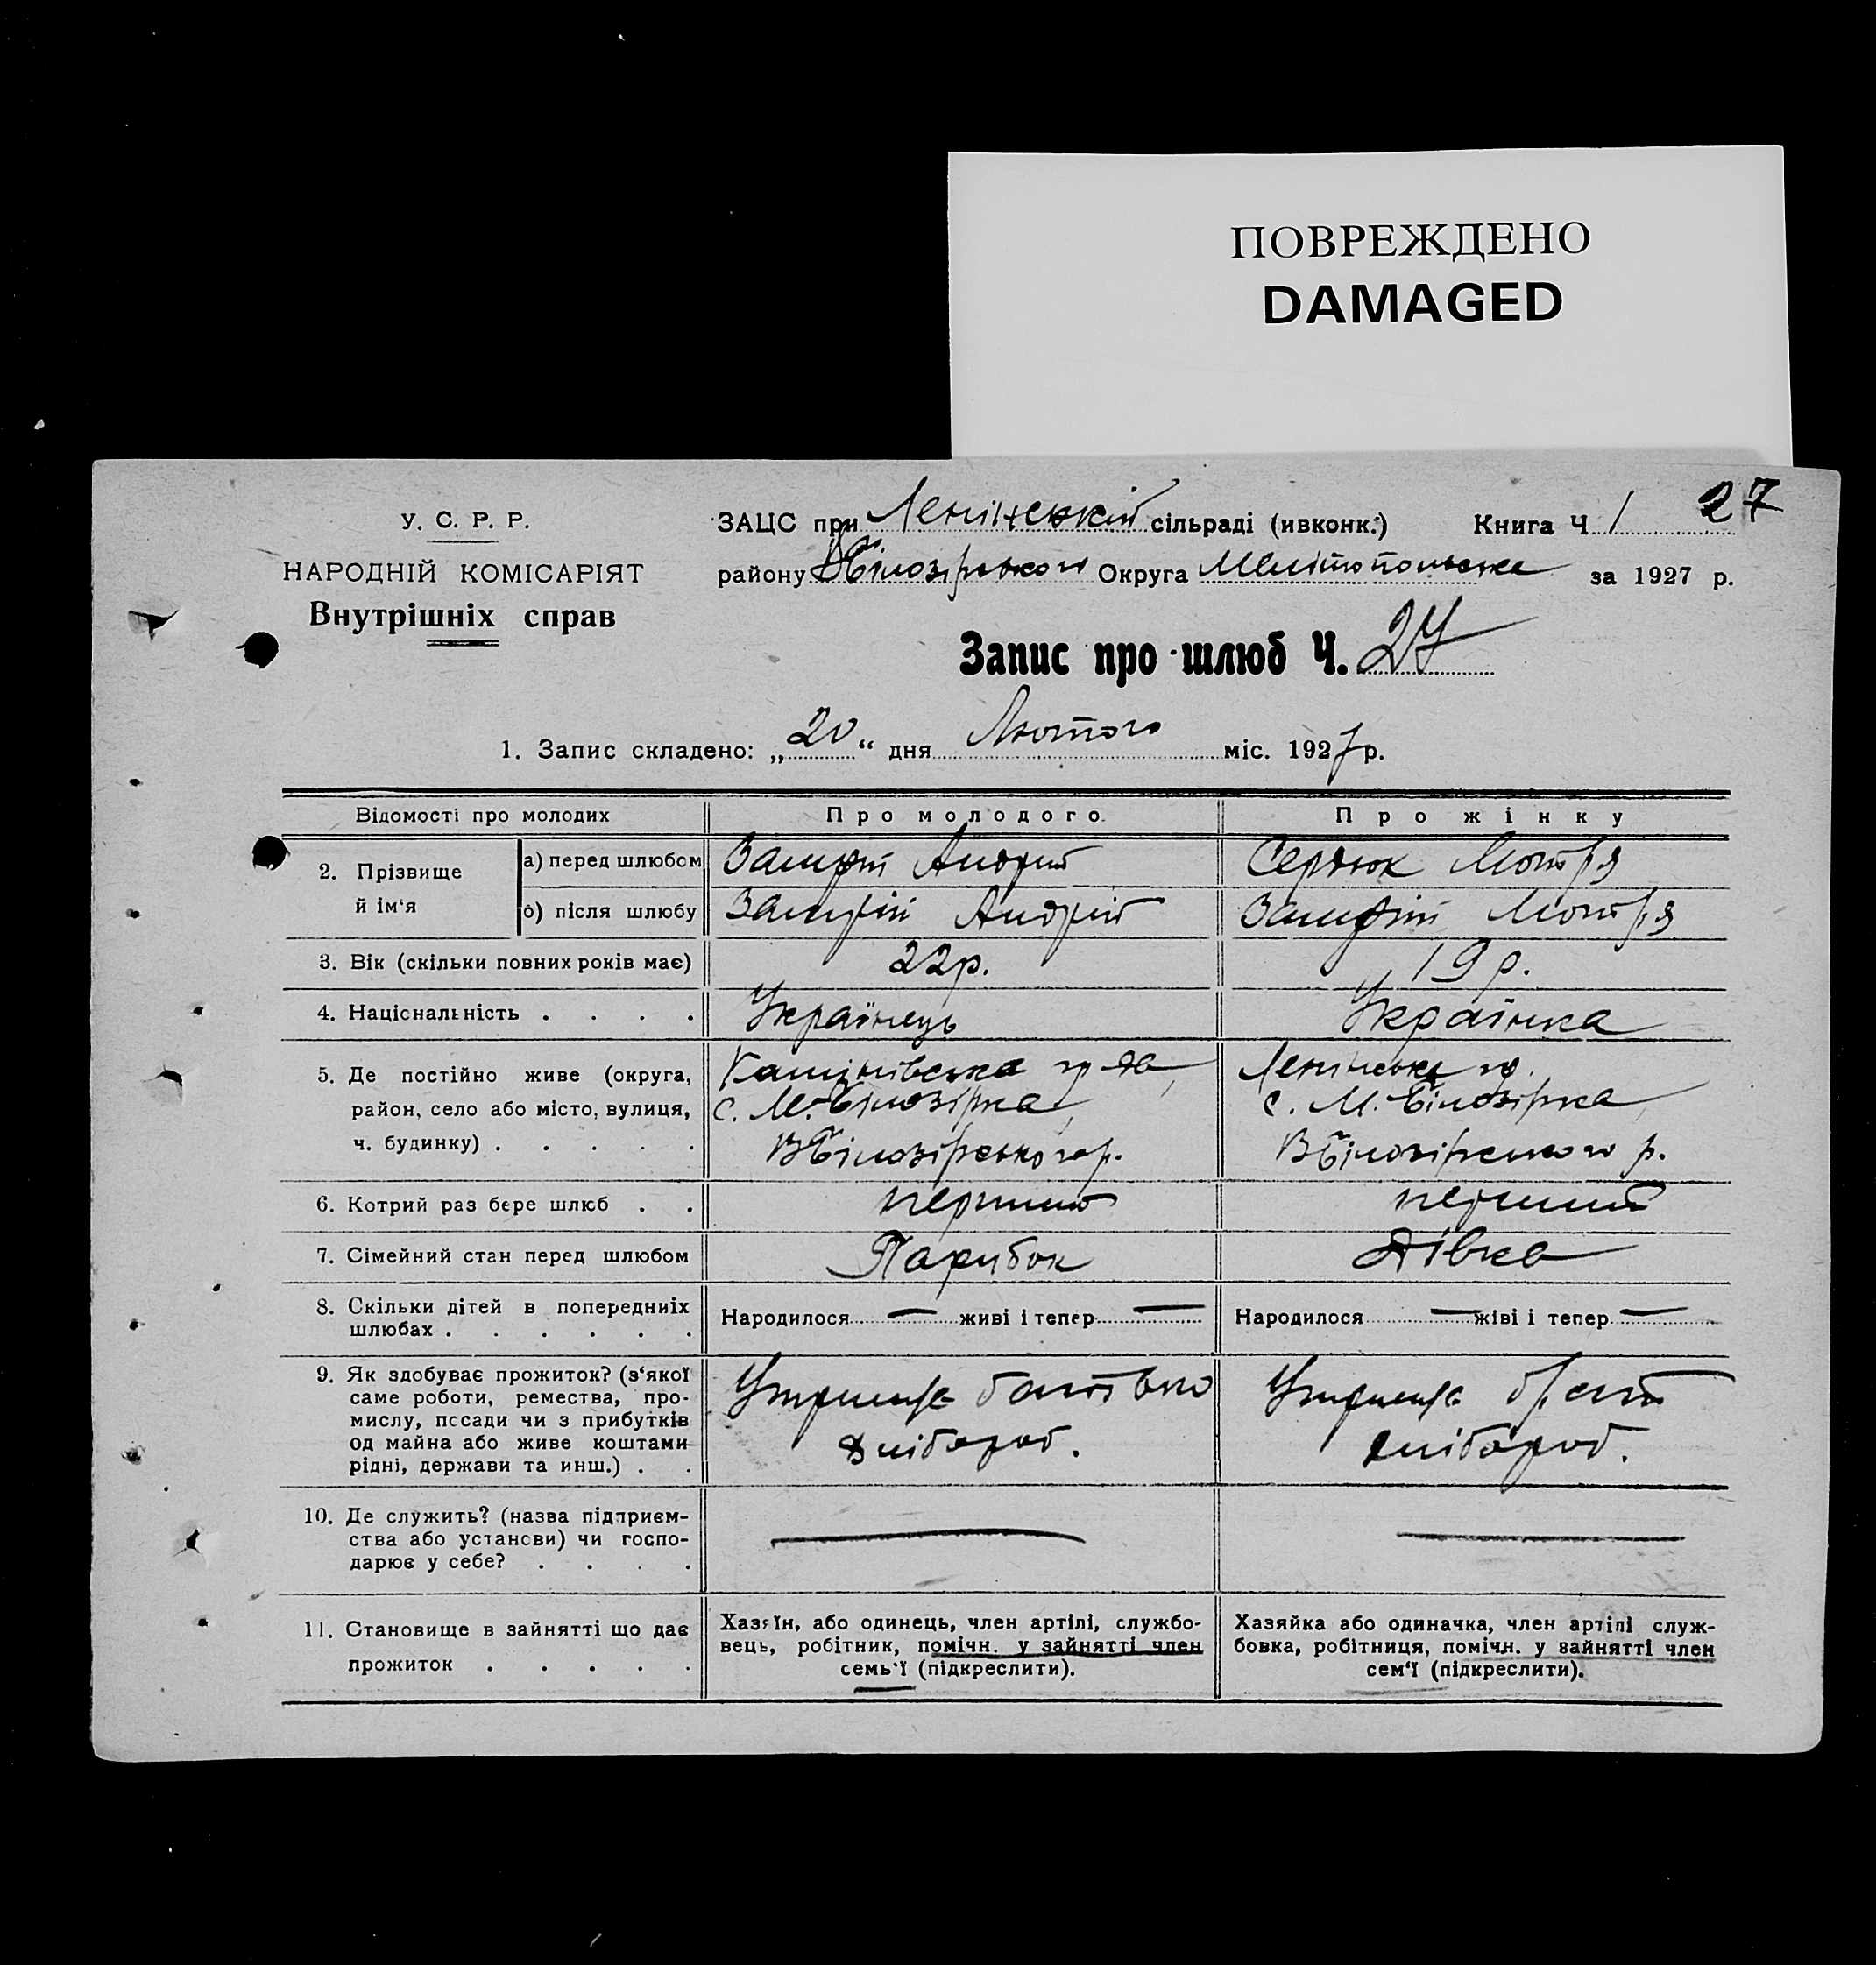 ПОВРЕЖДЕНО
DAMAGED
У. С. Р. Р.
НАРОДНІЙ КОМІСАРІЯТ
Внутрішніх справ
ЗАЦС при Ленінській сільраді (ивконк.) Книга Ч 1 27
району ВБілозірського Округа Мелітопольська за 1927 р.
Запис про шлюб Ч. 27
1. Запис складено: „20“ дня Лютого міс. 1927 р.
Відомості про молодих Про молодого. Про жінку
2. Прізвище й ім‘я
а) перед шлюбом Андрий Сердюк Мотря
б) після шлюбу Андрій Мотря
3. Вік (скільки повних років має) 22р. 19 р.
4. Національність . . . . Українець Українка
5. Де постійно живе (округа, Ленінська гр.
район, село або місто, вулиця, с. М.-Білозірка с. М. Білозірка
ч. будинку) . . . . . ВБілозірського р. ВБілозірського р.
6. Котрий раз бере шлюб . . перший перший
7. Сімейний стан перед шлюбом Парубок Дівка
8. Скільки дітей в попередниіх
шлюбах . . . . . . Народилося — живі і тепер — Народилося — жіві і тепер —
9. Як здобуває прожиток? (з‘якої
саме роботи, ремества, про-
мислу, посади чи з прибутків
од майна або живе коштами
рідні, держави та инш.) . .
хлібороб. хлібороб.
10. Де служить? (назва підприєм-
ства або установи) чи госпо-
дарює у себе? . . . .
11. Становище в зайнятті що дає
прожиток . . . . .
Хазяїн, або одинець, член артілі, службо-
вець, робітник, помічн. у зайнятті член
семь‘ї (підкреслити).
Хазяйка або одиначка, член артілі служ-
бовка, робітниця, помічн. у зайнятті член
сем‘ї (підкреслити).